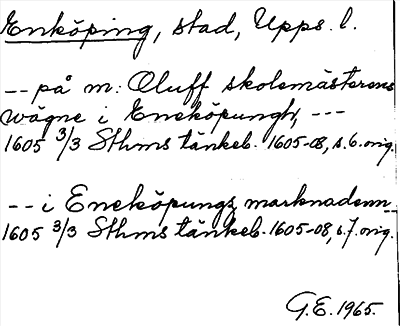 Enköping, stad, Upps. l.
-- på m: Oluff skolemästerens
wägne i Eneköpungh, ---
1605 3/3 Sthms tänkeb. 1605-08, s.6. orig.
-- i Eneköpungz marknadenn --
1605 3/3 Sthms tänkeb. 1605-08, s.7. orig.
G.E. 1965.